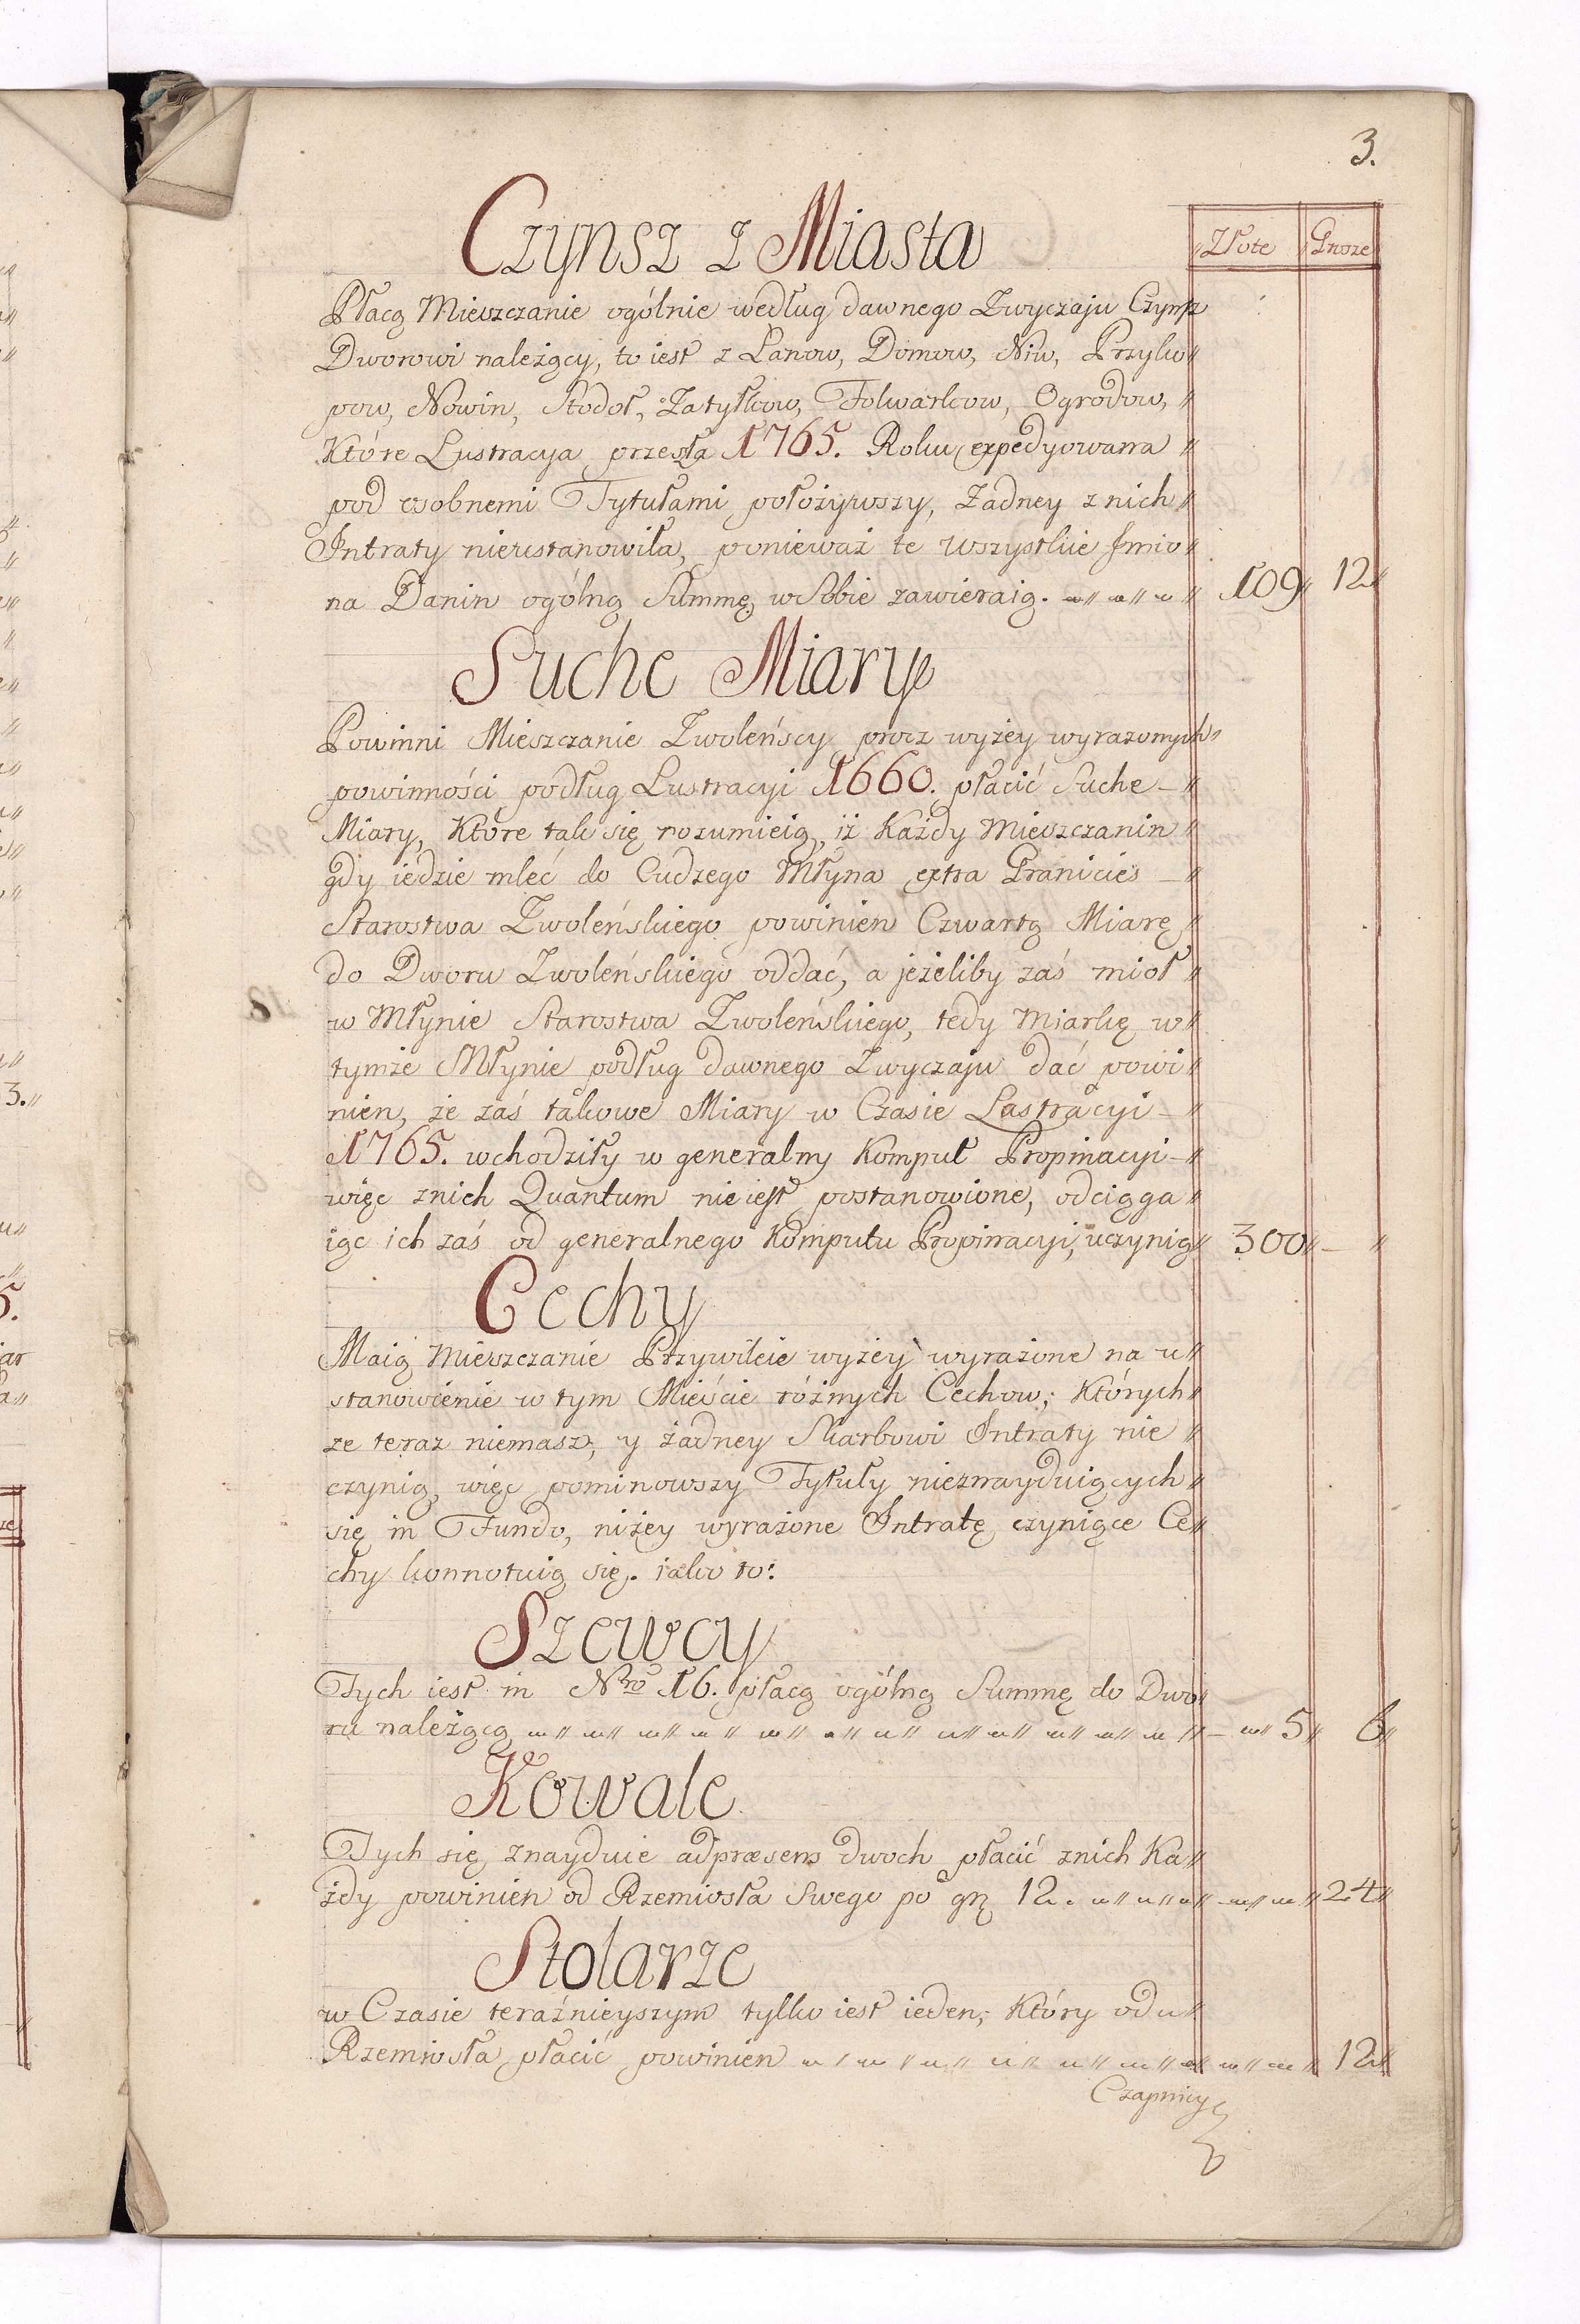 3.
Czynsz z Miasta
Złote Grosze
Płacą Mieszczanie ogólnie według dawnego Zwyczaju Czynsz
Dworowi należący, to iest z Łanow, Domow, Niw, Przyku〃
pow, Nowin, Stodoł, Zatyłkow, Folwarkow, Ogrodow, 〃
Które Lustracya przeszła 1765. Roku expedyowana 〃
pod osobnemi Tytułami położywszy, Żadney z nich 〃
Intraty nieustanowiła, ponieważ te wszystkie Jmio〃
na Danin ogólną Summę w Sobie zawieraią. 109〃 12〃
Suche Miary
Powinni Mieszczanie Zwoleńscy procz wyżey wyrażonych〃
powinności podług Lustracyi 1660. płacić Suche –〃
Miary, Które tak się rozumieią, iż Każdy Mieszczanin 〃
gdy iedzie mleć do Cudzego Młyna extra Granicies –〃
Starostwa Zwoleńskiego powinien Czwartą Miarę 〃
do Dworu Zwoleńskiego oddać, a jeżeliby zaś mioł 〃
w Młynie Starostwa Zwoleńskiego, tedy Miarkę w〃
tymże Młynie podług dawnego Zwyczaju dać powi〃
nien, że zaś takowe Miary w Czasie Lastracyi –〃
1765. wchodziły w generalny Komput Propinacyi –〃
więc znich Quantum nie iest postanowione, odciąga〃
iąc ich zaś od generalnego Komputu Propinacyi, uczynią〃 300〃 – 〃
Cechy
Maią Mieszczanie Przywileie wyżey wyrażone na u〃
stanowienie w tym Mieście różnych Cechow; Których〃
że teraz niemasz, y żadney Skarbowi Intraty nie 〃
czynią, więc pominowszy Tytuły nieznayduiących〃
się in Fundo, niżey wyrażone Intratę czyniące Ce〃
chy konnotuią się. iako to:
Szewcy
Tych iest in Nro 16. płacą ogólną Summę do Dwo〃
ru należącą 5〃 6〃
Kowale
Tych się znayduie adpræsens dwoch płacić znich Ka〃
żdy powinien od Rzemiosła Swego po gr 12. 24〃
Stolarze
w Czasie teraźnieyszym tylko iest ieden, Który od 〃
Rzemiosła płacić powinien 12〃
Czapnicy